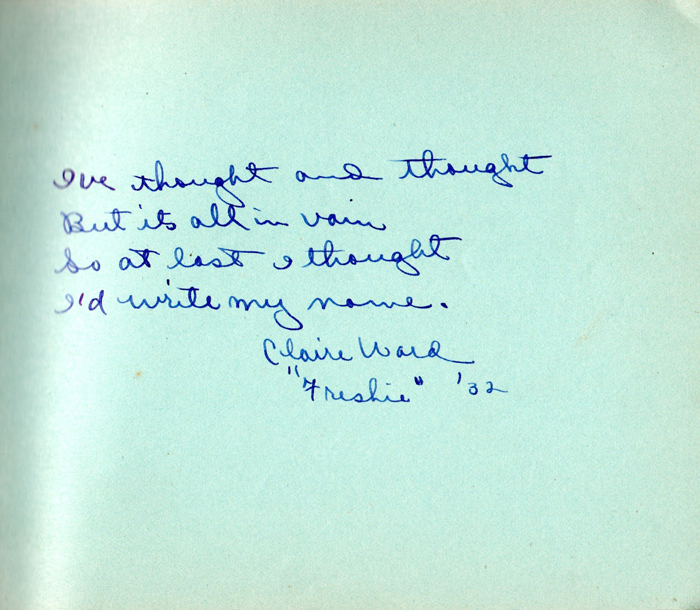 I've thought and thought
But its all in vain
So at last I thought
I'd write my name.
Claire Ward
"Freshie" '32